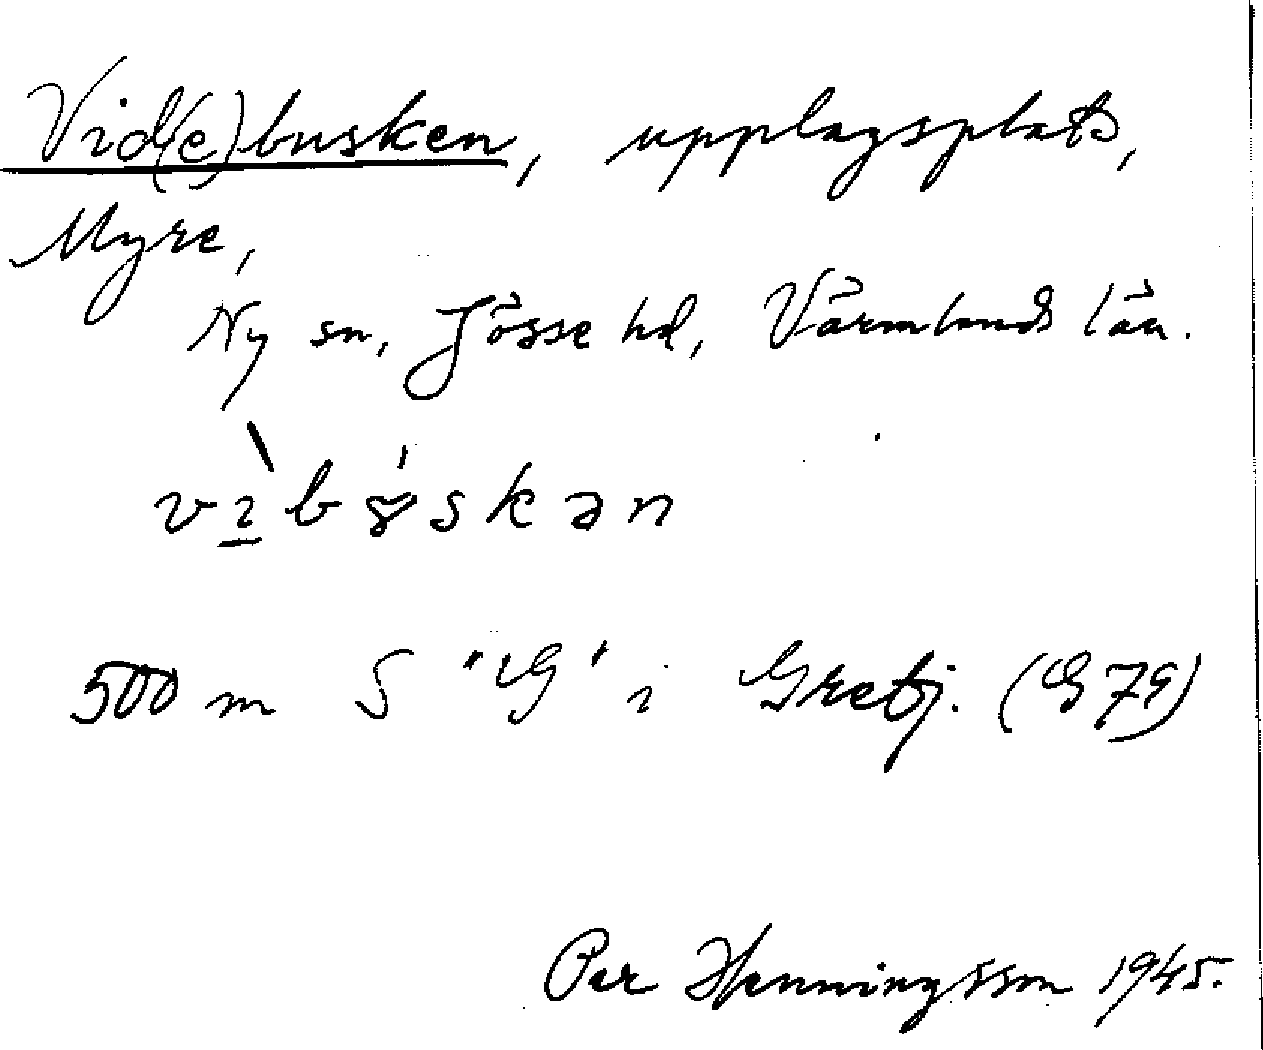 Vid(e)busken, upplagsplats,
Myre,
Ny sn, Jösse hd, Värmlands län.
500 m S "G" i Gretj. (G 79)
Per Henningsson 1945.